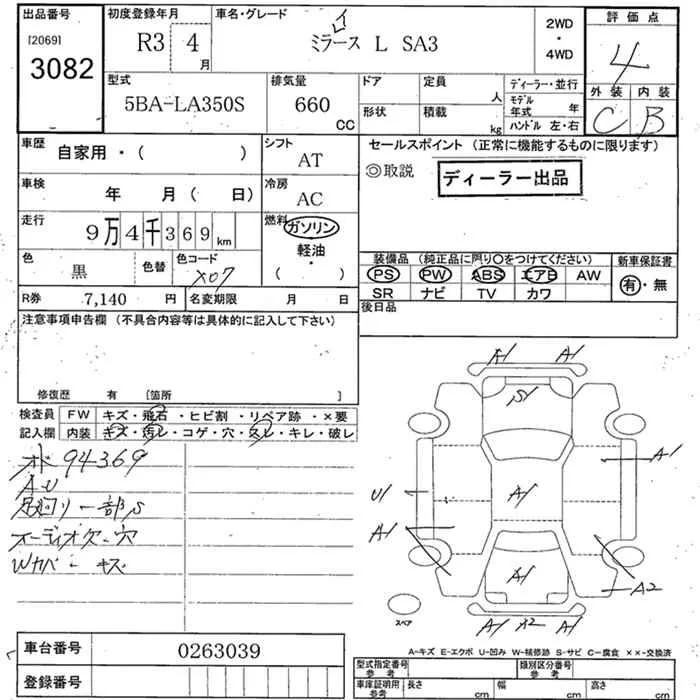 出品番号
[2069]
3082
初度登録年月
R3 4 月
車名・グレード
ミライース L SA3
2WD
・
4WD
評価点
4
外装 内装
C B
型式
5BA-LA350S
排気量
660 CC
ドア
定員 人
形状
積載 kg
ディーラー・並行
モデル年式 年
ハンドル 左・右
車歴
自家用・( )
シフト
AT
車検
年 月 ( 日)
冷房
AC
走行
9万4千369km
燃料
ガソリン
軽油
・
( )
色
黒
色替
色コード
X07
R券 7,140 円
名変期限 月 日
セールスポイント (正常に機能するものに限ります)
◎取説
ディーラー出品
装備品 (純正品に限り○をつけてください)
PS PW ABS エアB AW
SR ナビ TV カワ
新車保証書
有・無
後日品
注意事項申告欄 (不具合内容等は具体的に記入して下さい)
修復歴 有 [箇所 ]
検査員
記入欄
FW キズ・飛石・ヒビ割・リペア跡・×要
内装 キズ・汚レ・コゲ・穴・スレ・キレ・破レ
オド 94369
AU
足回り一部S
オーディオ欠・穴
Wカバーキズ
A1 A1
S1
A1
A1
U1
A1
A1
A2
A1 X2 A1
スペア
A-キズ E-エクボ U-凹み W-補修跡 S-サビ C-腐食 ××-交換済
車台番号 0263039
登録番号
型式指定番号
参考
類別区分番号
参考
車庫証明用
参考
長さ cm
幅 cm
高さ cm